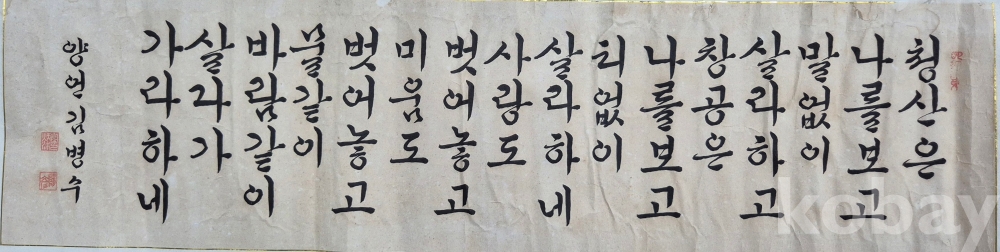 청산은
나를보고
말없이
살라하고
창공은
나를보고
틔없이
살라하네
사랑도
벗어놓고
미움도
벗어놓고
물같이
바람같이
살라가
가라하네
양언 김병수
kobay